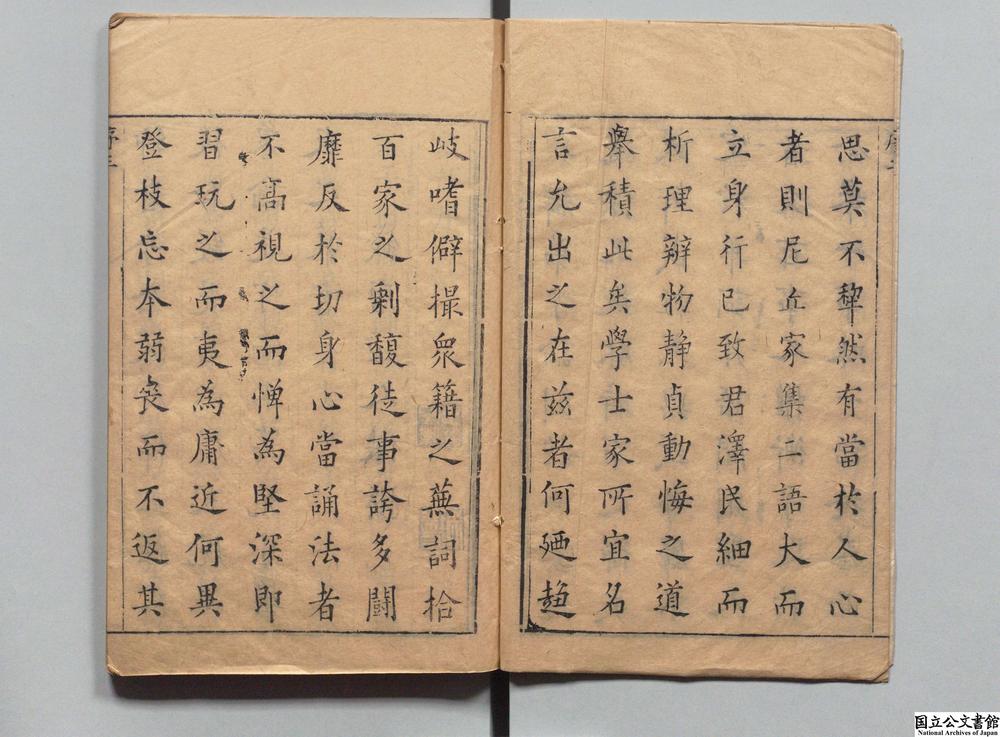 思莫不犂然有當於人心
者則尼丘家集二語大而
立身行已致君澤民細而
析理辨物静貞動悔之道
舉積此矣學士家所宜名
言允出之在茲者何廼趋
岐嗜僻撮衆籍之蕪詞拾
百家之剩馥徒事誇多鬪
靡反於切身心當誦法者
不高視之而憚為堅深即
習玩之而夷為庸近何異
登枝忘本弱喪而不返其
国立公文書館
National Archives of Japan